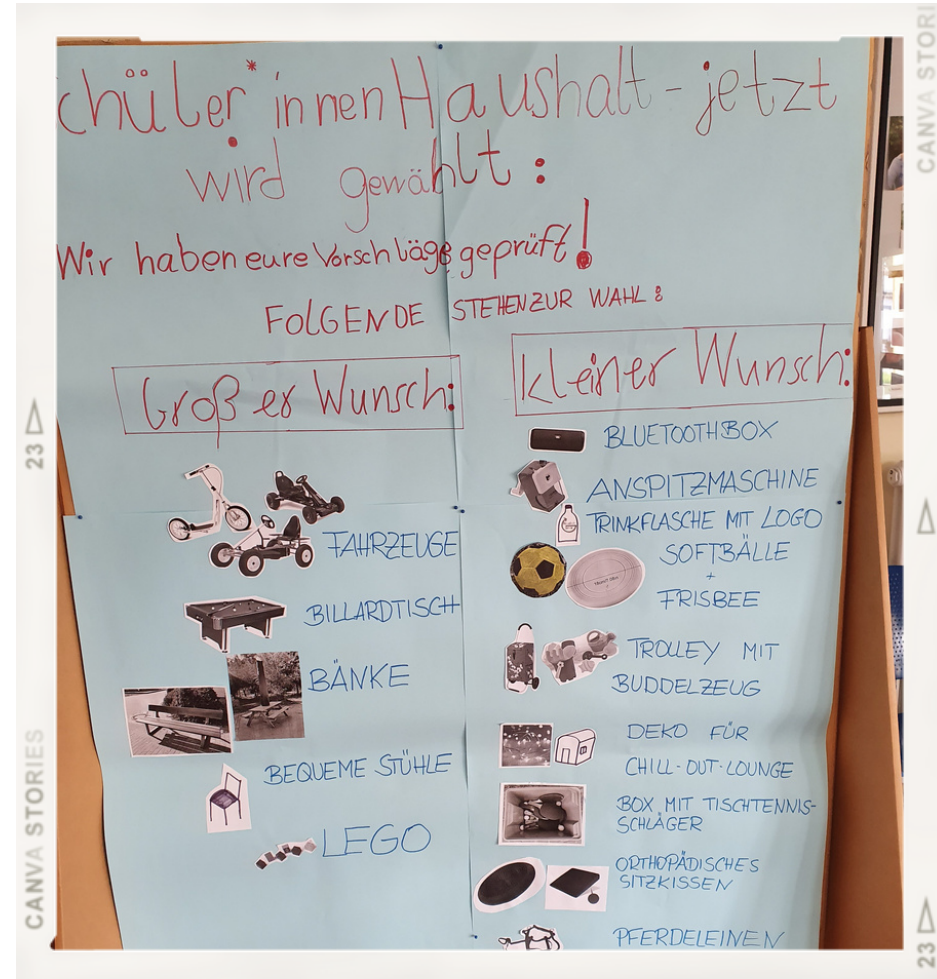 chüler*innen Haushalt - jetzt
wird gewählt:
Wir haben eure Vorschläge geprüft!
FOLGENDE STEHEN ZUR WAHL:
Großer Wunsch:
FAHRZEUGE
BILLARDTISCH
BÄNKE
BEQUEME STÜHLE
LEGO
kleiner Wunsch:
BLUETOOTHBOX
ANSPITZMASCHINE
TRINKFLASCHE MIT LOGO
SOFTBÄLLE
+
FRISBEE
TROLLEY MIT
BUDDELZEUG
DEKO FÜR
CHILL-OUT-LOUNGE
BOX MIT TISCHTENNIS-
SCHLÄGER
ORTHOPÄDISCHES
SITZKISSEN
PFERDELEINEN
CANVA STORI
23
CANVA STORIES
23